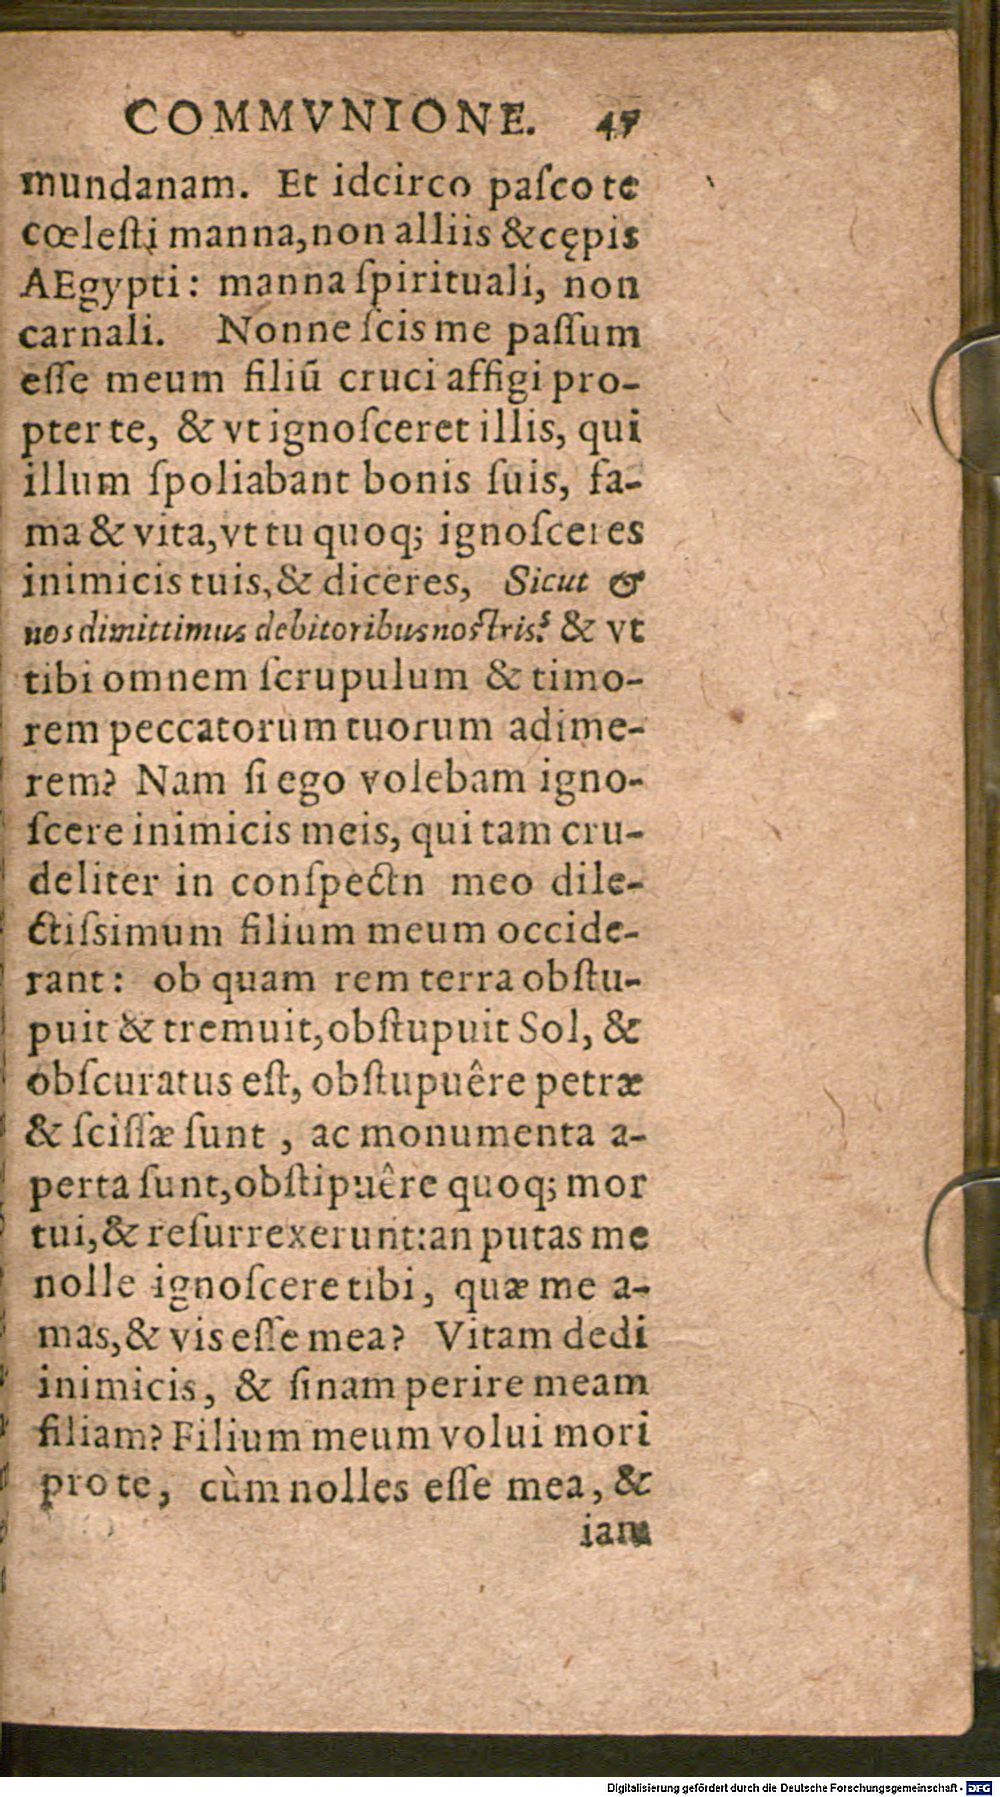 COMMVNIONE. 47
mundanam. Et idcirco paſco te
cœleſti manna, non alliis & cępis
AEgypti: manna ſpirituali, non
carnali. Nonne ſcis me paſſum
eſſe meum filiū cruci affigi pro-
pter te, & vt ignoſceret illis, qui
illum ſpoliabant bonis ſuis, fa-
ma & vita, vt tu quoq; ignoſceres
inimicis tuis, & diceres, Sicut &
nos dimittimus debitoribus noſtris? & vt
tibi omnem ſcrupulum & timo-
rem peccatorum tuorum adime-
rem? Nam ſi ego volebam igno-
ſcere inimicis meis, qui tam cru-
deliter in conſpectn meo dile-
ctiſsimum filium meum occide-
rant: ob quam rem terra obſtu-
puit & tremuit, obſtupuit Sol, &
obſcuratus eſt, obſtupuêre petræ
& ſciſſæ ſunt, ac monumenta a-
perta ſunt, obſtipuêre quoq; mor
tui, & reſurrexerunt: an putas me
nolle ignoſcere tibi, quæ me a-
mas, & vis eſſe mea? Vitam dedi
inimicis, & ſinam perire meam
filiam? Filium meum volui mori
pro te, cùm nolles eſſe mea, &
iam
Digitalisierung gefördert durch die Deutsche Forschungsgemeinschaft - DFG